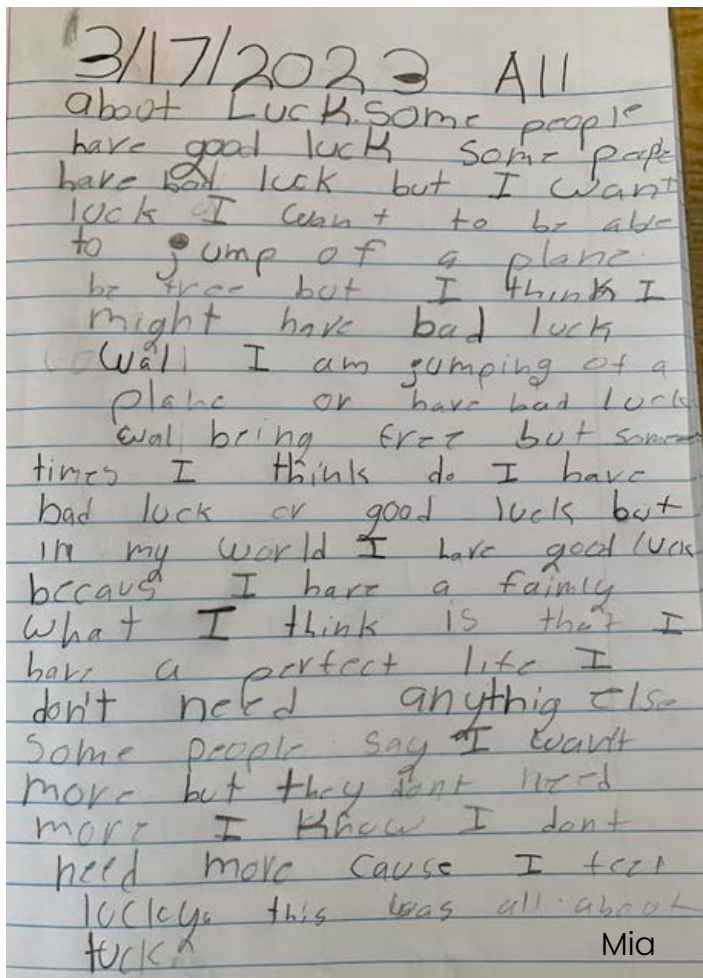 3/17/2023 All
about Luck. Some people
have good luck some peaple
have bad luck but I want
luck I want to be able
to jump of a plane.
be free but I think I
might have bad luck
wall I am jumping of a
plane or have bad luck
wal bring free but some
times I think do I have
bad luck or good luck but
in my world I have good luck
becaus I have a faimly
what I think is that I
have a perfect life I
don't need anythig else
some people say I wan't
more but they dont need
more I know I dont
need more cause I feel
lucky. this was all about
luck.
Mia